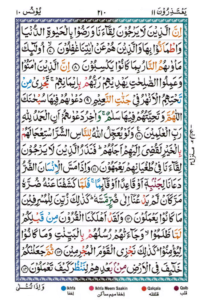 يَعْتَذِرُوْنَ ١١
٢١٠
يُوْنُس ١٠
اِنَّ الَّذِيْنَ لَا يَرْجُوْنَ لِقَآءَنَا وَرَضُوْا بِالْحَيٰوةِ الدُّنْيَا
وَاطْمَاَنُّوْا بِهَا وَالَّذِيْنَ هُمْ عَنْ اٰيٰتِنَا غٰفِلُوْنَ ۝ اُولٰٓئِكَ
مَاْوٰىهُمُ النَّارُ بِمَا كَانُوْا يَكْسِبُوْنَ ۝ اِنَّ الَّذِيْنَ اٰمَنُوْا
وَعَمِلُوا الصّٰلِحٰتِ يَهْدِيْهِمْ رَبُّهُمْ بِاِيْمَانِهِمْ ۚ تَجْرِيْ مِنْ
تَحْتِهِمُ الْاَنْهٰرُ فِيْ جَنّٰتِ النَّعِيْمِ ۝ دَعْوٰىهُمْ فِيْهَا سُبْحٰنَكَ
اللّٰهُمَّ وَتَحِيَّتُهُمْ فِيْهَا سَلٰمٌ ۚ وَاٰخِرُ دَعْوٰىهُمْ اَنِ الْحَمْدُ لِلّٰهِ
رَبِّ الْعٰلَمِيْنَ ۝ وَلَوْ يُعَجِّلُ اللّٰهُ لِلنَّاسِ الشَّرَّ اسْتِعْجَالَهُمْ
بِالْخَيْرِ لَقُضِيَ اِلَيْهِمْ اَجَلُهُمْ ۚ فَنَذَرُ الَّذِيْنَ لَا يَرْجُوْنَ
لِقَآءَنَا فِيْ طُغْيَانِهِمْ يَعْمَهُوْنَ ۝ وَاِذَا مَسَّ الْاِنْسَانَ الضُّرُّ
دَعَانَا لِجَنْۢبِهٖٓ اَوْ قَاعِدًا اَوْ قَآئِمًا ۚ فَلَمَّا كَشَفْنَا عَنْهُ ضُرَّهٗ
مَرَّ كَاَنْ لَّمْ يَدْعُنَآ اِلٰى ضُرٍّ مَّسَّهٗ ۚ كَذٰلِكَ زُيِّنَ لِلْمُسْرِفِيْنَ
مَا كَانُوْا يَعْمَلُوْنَ ۝ وَلَقَدْ اَهْلَكْنَا الْقُرُوْنَ مِنْ قَبْلِكُمْ
لَمَّا ظَلَمُوْا ۙ وَجَآءَتْهُمْ رُسُلُهُمْ بِالْبَيِّنٰتِ وَمَا كَانُوْا
لِيُؤْمِنُوْا ۚ كَذٰلِكَ نَجْزِي الْقَوْمَ الْمُجْرِمِيْنَ ۝ ثُمَّ جَعَلْنٰكُمْ
خَلٰٓئِفَ فِي الْاَرْضِ مِنْۢ بَعْدِهِمْ لِنَنْظُرَ كَيْفَ تَعْمَلُوْنَ ۝
Ikhfa Meem Saakin
Qalqala
Qalb
قلقلہ
قلب